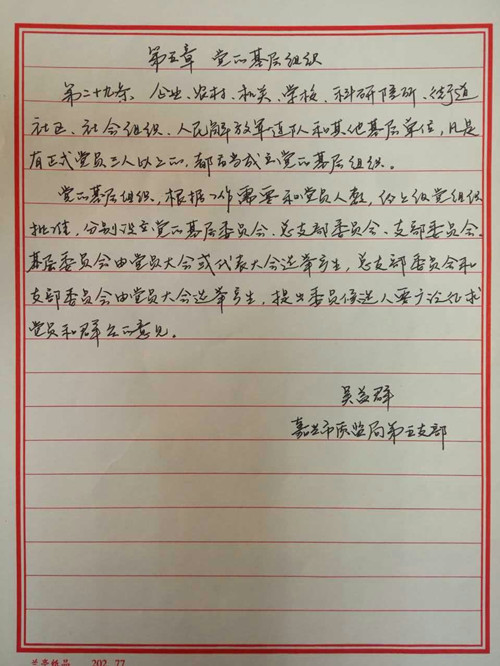 第五章 党的基层组织
第二十九条 企业、农村、机关、学校、科研院所、街道
社区、社会组织、人民解放军连队和其他基层单位，凡是
有正式党员三人以上的，都应当成立党的基层组织。
党的基层组织，根据工作需要和党员人数，经上级党组织
批准，分别设立党的基层委员会、总支部委员会、支部委员会。
基层委员会由党员大会或代表大会选举产生，总支部委员会和
支部委员会由党员大会选举产生，提出委员候选人要广泛征求
党员和群众的意见。
吴益群
嘉兴市质监局第五支部
202 77